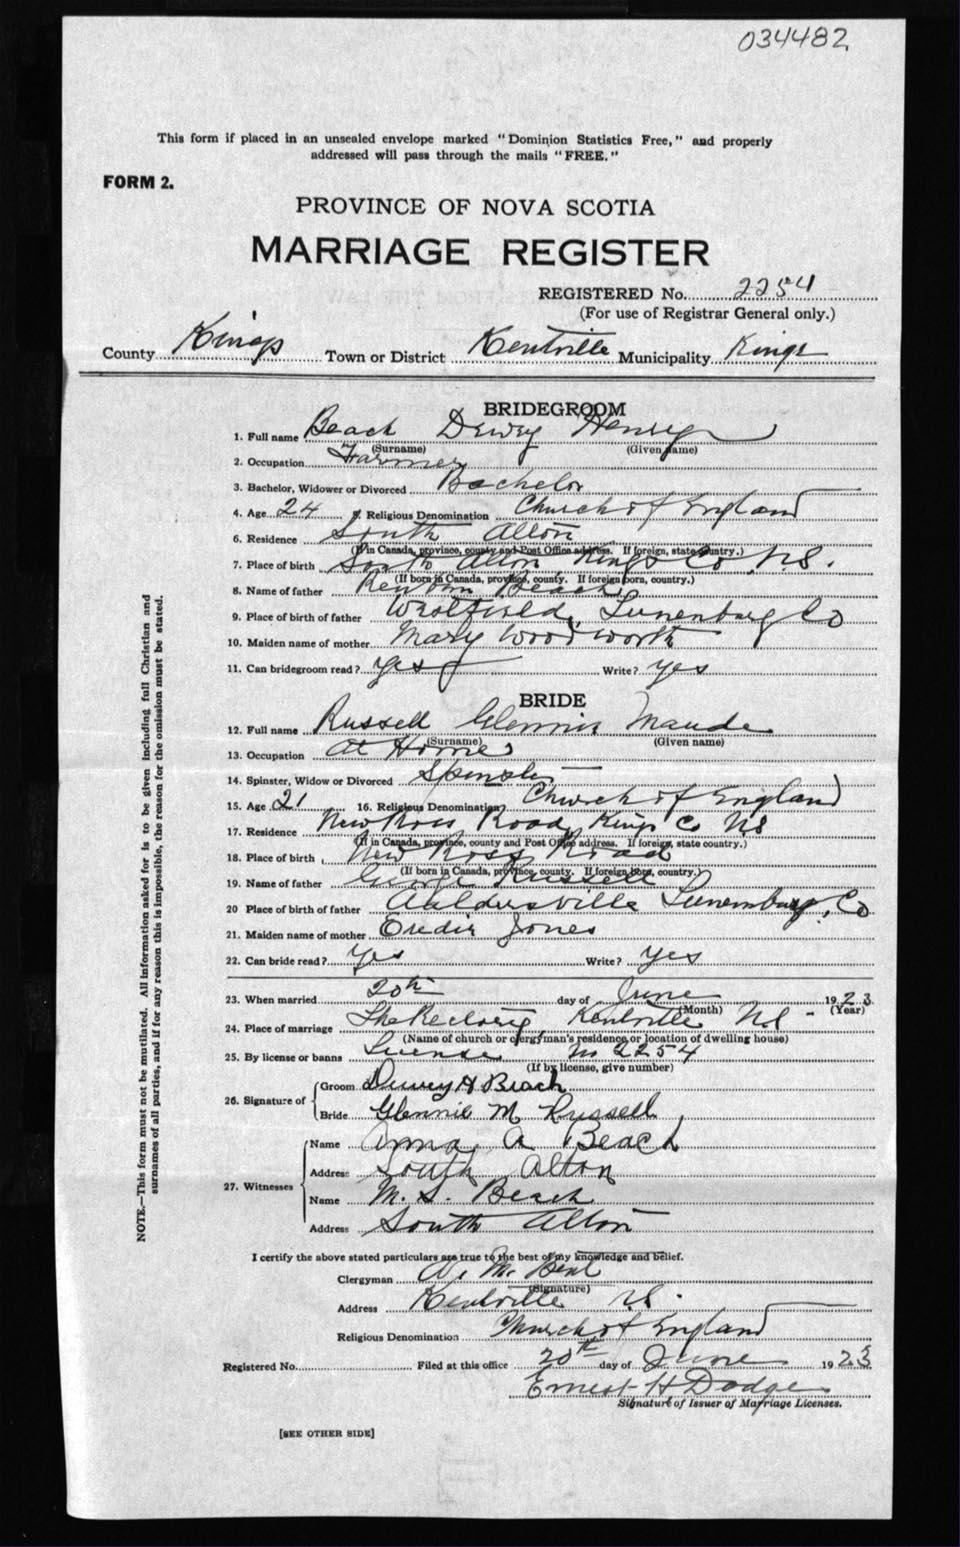 034482
This form if placed in an unsealed envelope marked "Dominion Statistics Free," and properly
addressed will pass through the mails "FREE."
FORM 2.
PROVINCE OF NOVA SCOTIA
MARRIAGE REGISTER
REGISTERED No. 2254
(For use of Registrar General only.)
County Kings Town or District Kentville Municipality Kings
BRIDEGROOM
1. Full name Beach Dewey Henry
(Surname) (Given name)
2. Occupation Farmer
3. Bachelor, Widower or Divorced Bachelor
4. Age 24 5. Religious Denomination Church of England
6. Residence South Alton
(If in Canada, province, county and Post Office address. If foreign, state country.)
7. Place of birth South Alton Kings Co. N.S.
(If born in Canada, province, county. If foreign born, country.)
8. Name of father Beach
9. Place of birth of father Lunenburg Co
10. Maiden name of mother Mary Woodworth
11. Can bridegroom read? yes Write? yes
BRIDE
12. Full name Russell Glennie Maude
(Surname) (Given name)
13. Occupation At Home
14. Spinster, Widow or Divorced Spinster
15. Age 21 16. Religious Denomination Church of England
17. Residence New Ross Road, Kings Co NS
(If in Canada, province, county and Post Office address. If foreign, state country.)
18. Place of birth New Ross Road
(If born in Canada, province, county. If foreign born, country.)
19. Name of father George Russell
20 Place of birth of father Lunenburg, Co
21. Maiden name of mother Jones
22. Can bride read? yes Write? yes
23. When married 20th day of June 1923
(Month) (Year)
24. Place of marriage The Rectory, Kentville N.S.
(Name of church or clergyman's residence, or location of dwelling house)
25. By license or banns License No 2254
(If by license, give number)
26. Signature of Groom Dewey H Beach
Bride Glennie M Russell
27. Witnesses Name Anna A Beach
Address South Alton
Name M. S. Beach
Address South Alton
I certify the above stated particulars are true to the best of my knowledge and belief.
Clergyman M. Bent
(Signature)
Address Kentville N.S.
Religious Denomination Church of England
Registered No. Filed at this office 20th day of June 1923
Ernest H Dodge
Signature of Issuer of Marriage Licenses.
[SEE OTHER SIDE]
NOTE.—This form must not be mutilated. All information asked for is to be given including full Christian and
surnames of all parties, and if for any reason this is impossible, the reason for the omission must be stated.